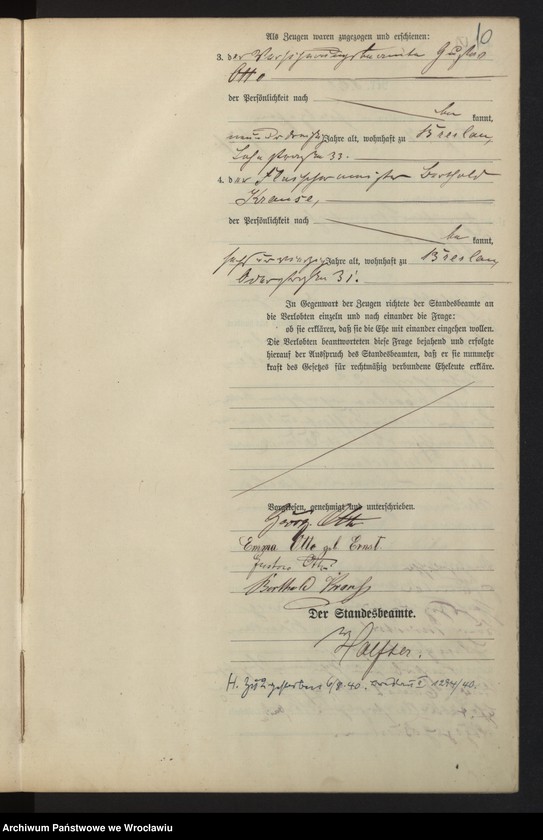 10
Als Zeugen waren zugezogen und erschienen:
3. der Versicherungsbeamte Gustav
Otto
der Persönlichkeit nach
be
kannt,
neun und dreißig Jahre alt, wohnhaft zu Breslau,
Lohestraße 33.
4. der Fleischermeister Berthold
Krause,
der Persönlichkeit nach
be
kannt,
Jahre alt, wohnhaft zu Breslau,
Oderstraße 31.
In Gegenwart der Zeugen richtete der Standesbeamte an
die Verlobten einzeln und nach einander die Frage:
ob sie erklären, daß sie die Ehe mit einander eingehen wollen.
Die Verlobten beantworteten diese Frage bejahend und erfolgte
hierauf der Ausspruch des Standesbeamten, daß er sie nunmehr
kraft des Gesetzes für rechtmäßig verbundene Eheleute erkläre.
Vorgelesen, genehmigt und unterschrieben.
Georg Otto
Emma Otto geb. Ernst.
Gustav Otto
Berthold Krause
Der Standesbeamte.
Halfter.
H. zu 2 gestorben 6/8.40. Breslau I 1294/40.
Archiwum Państwowe we Wrocławiu